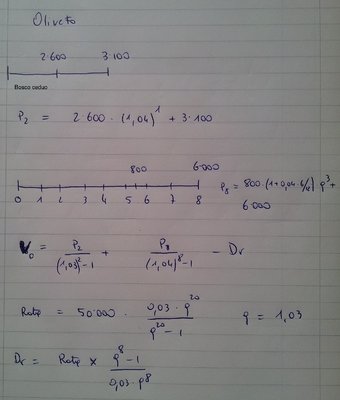 Oliveto
2.600 3.100
Bosco ceduo
P₂ = 2.600 · (1,04)¹ + 3.100
800 6.000
0 1 2 3 4 5 6 7 8
P₈ = 800 · (1+0,04 · 6/12) q³ +
6.000
V₀ = P₂/((1,03)²-1) + P₈/((1,04)⁸-1) - Dr
Rata = 50.000 · (0,03 · q²⁰)/(q²⁰-1) q = 1,03
Dr = Rata × (q⁸-1)/(0,03 · q⁸)